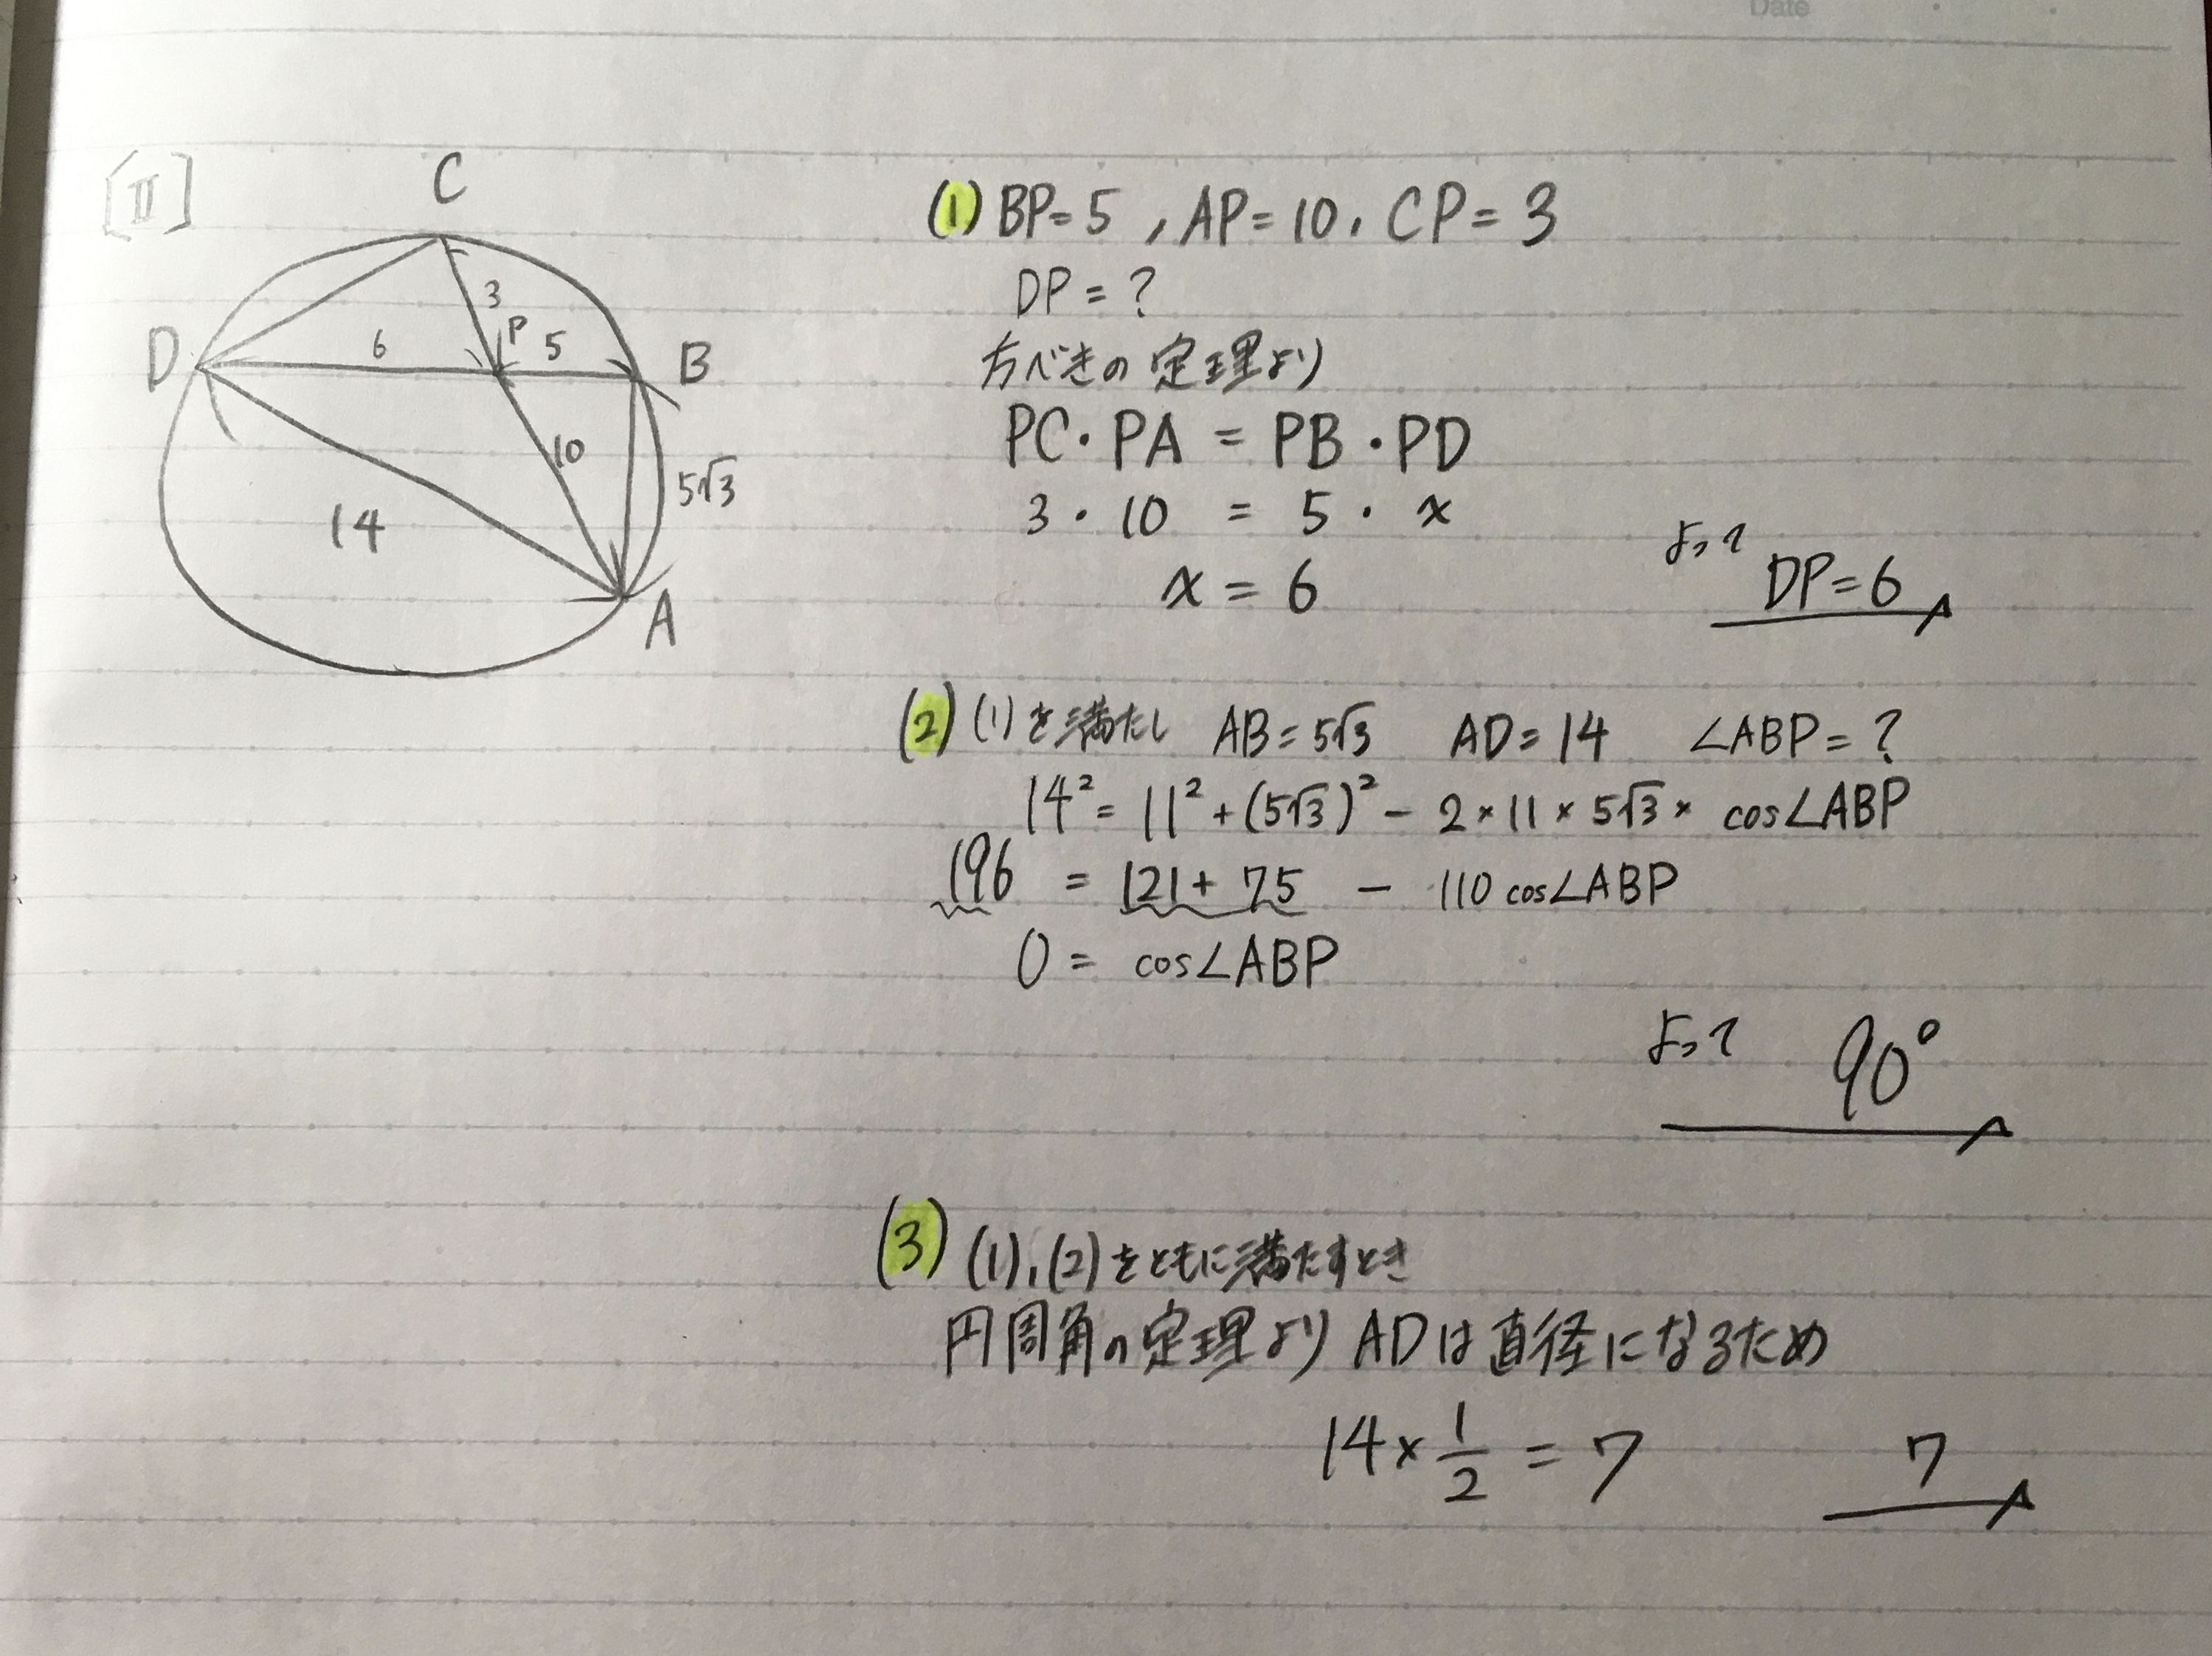 Date
[II]
C
3
P
D
6
5
B
10
5√3
14
A
(1) BP=5 , AP=10, CP=3
DP=?
方べきの定理より
PC・PA = PB・PD
3・10 = 5・x
x = 6
よって DP=6
(2) (1)を満たし AB=5√3 AD=14 ∠ABP=?
14²= 11²+(5√3)²- 2×11×5√3× cos∠ABP
196 = 121+ 75 - 110 cos∠ABP
0 = cos∠ABP
よって 90°
(3) (1),(2)をともに満たすとき
円周角の定理より ADは直径になるため
14×1/2 = 7 7